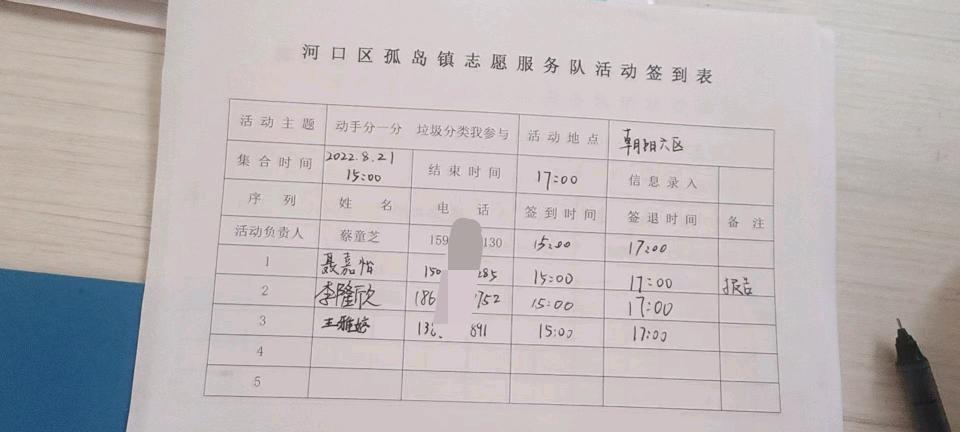 河口区孤岛镇志愿服务队活动签到表
活动主题 动手分一分 垃圾分类我参与 活动地点 朝阳六区
集合时间 2022.8.21 15:00 结束时间 17:00 信息录入
序列 姓名 电话 签到时间 签退时间 备注
活动负责人 蔡童芝 159 130 15:00 17:00
1 聂嘉怡 150 285 15:00 17:00
2 李隆欣 186 752 15:00 17:00
3 王雅婷 136 891 15:00 17:00
4
5